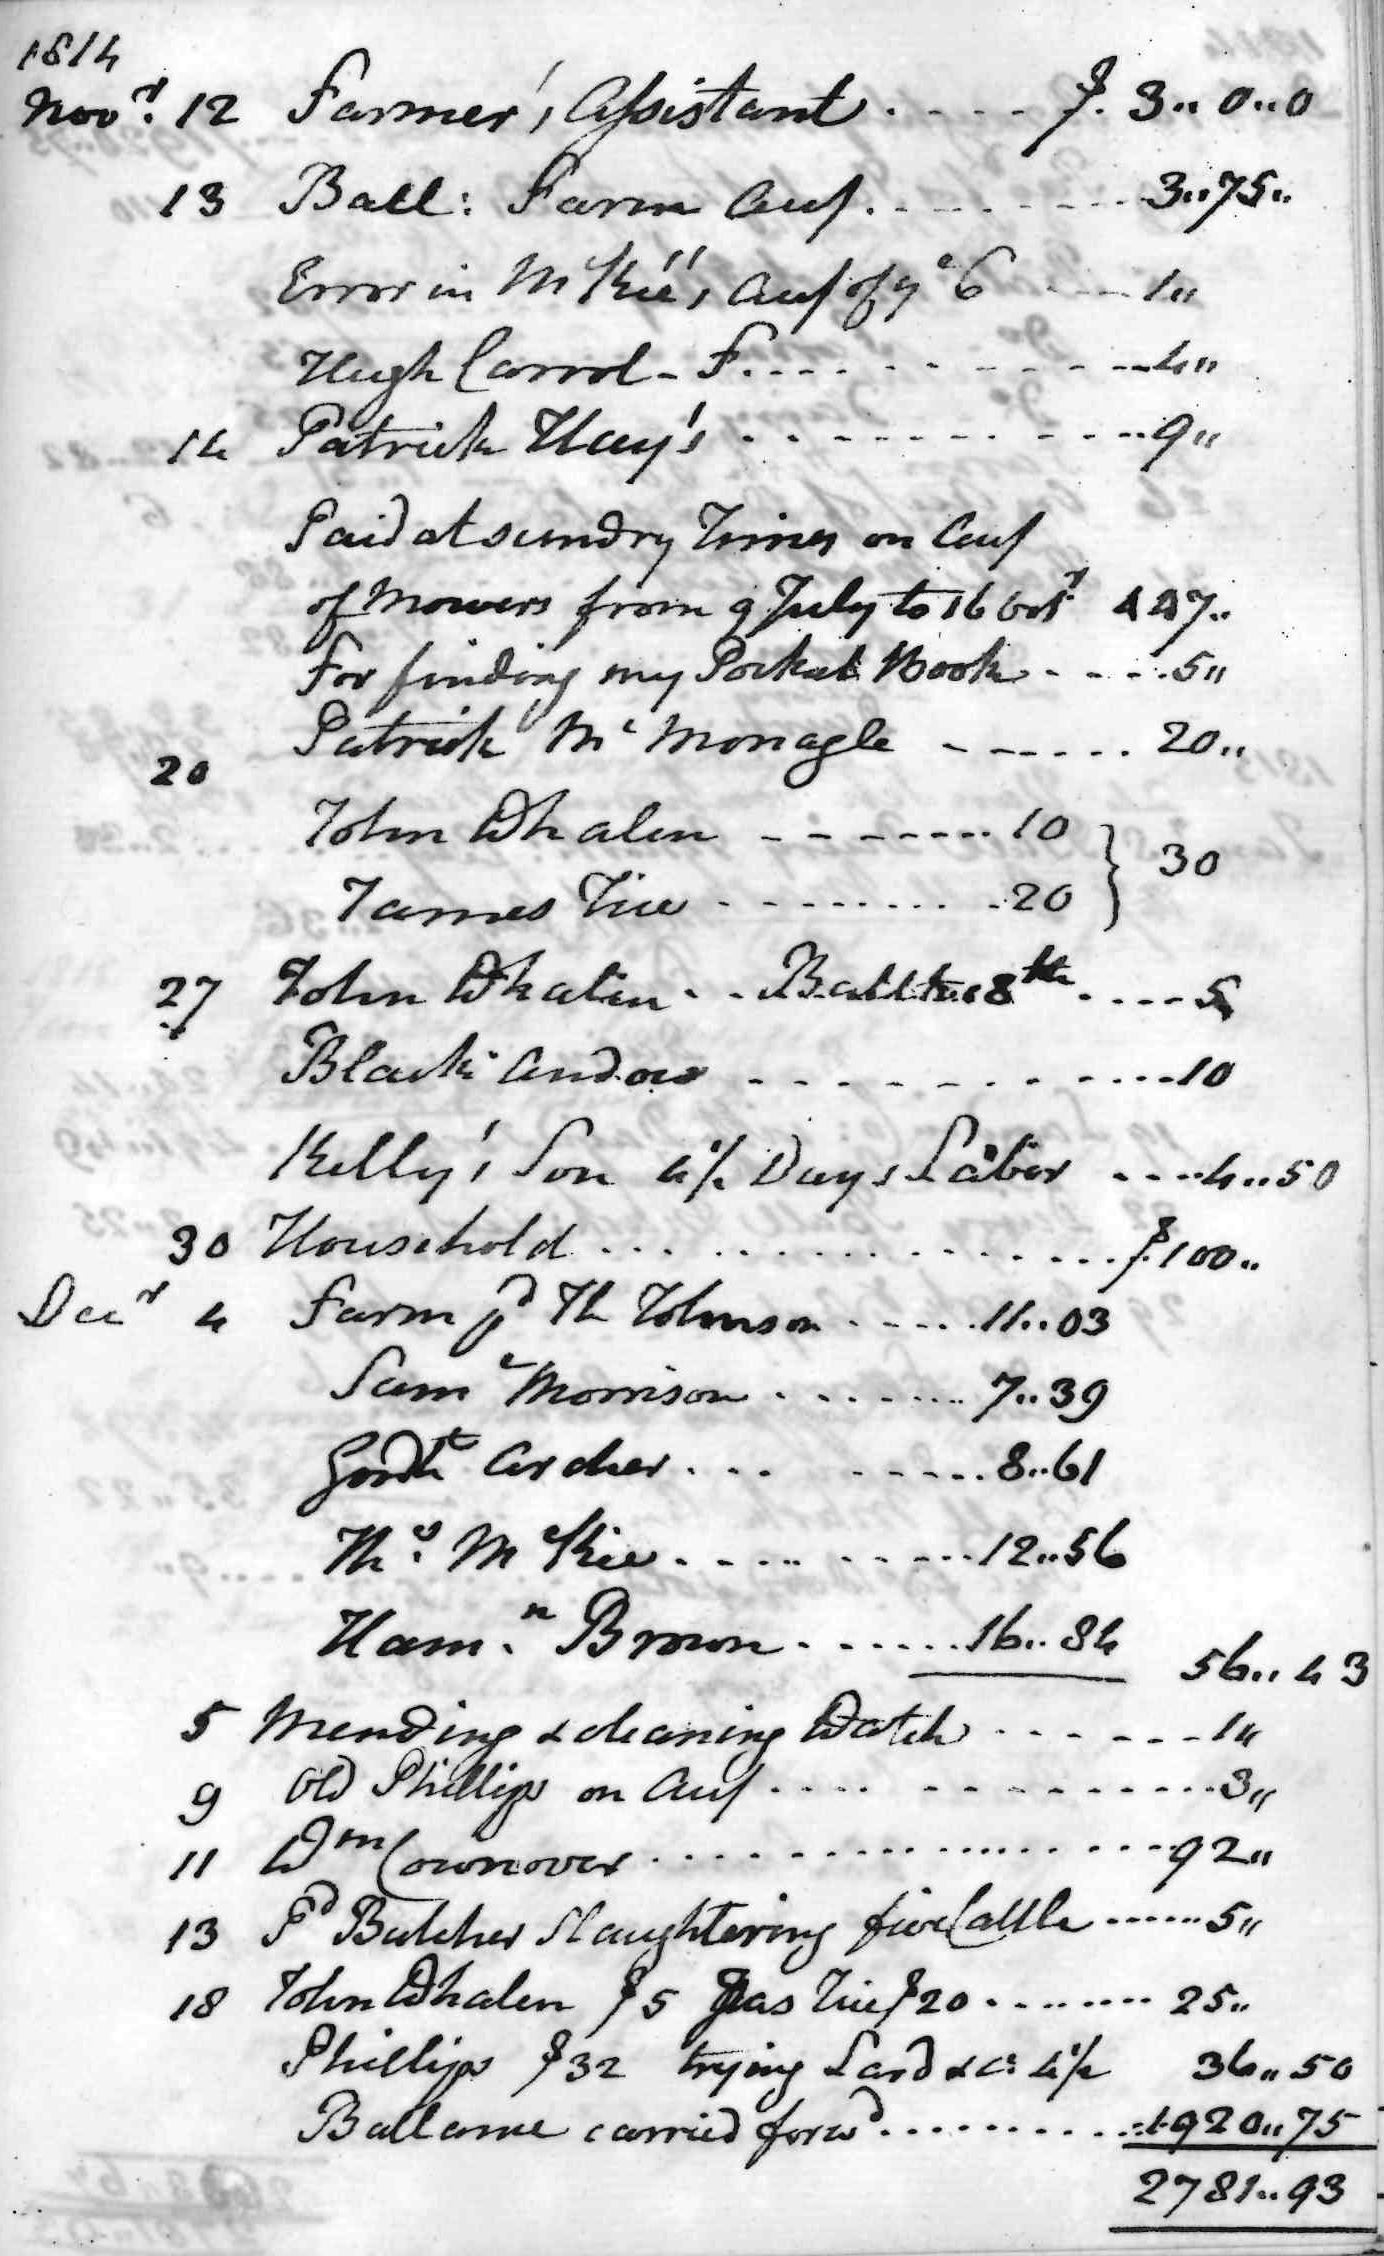 1814
Novr. 12 Farmer's Assistant . . . . $. 3,, 0,, 0
13 Ball: Farm Acct. . . . . . . . . 3,,75,,
Error in McKie's Acct of ye 6 . . . 1,,
Hugh Carrol - F. . . . . . . . . . 4,,
14 Patrick Hay's . . . . . . . . . 9,,
Paid at sundry Times on Acct
of Mowers from 9 July to 16 Octr. 447,,
For finding my Pocket Book . . . . . 5,,
Patrick Mc Monagle - - - . . . 20,,
20
John Whalen - - - - . . . 10 } 30
James Tice . . . . . . . . . 20
27 John Whalen . . Ball to 18th . . . . 5
Black Andow . . . . . . . . . 10
Kelly's Son 4 1/2 Days Labor . . . . 4,,50
30 Household . . . . . . . . . . . . $.100,,
Decr 4 Farm pd Th Johnson . . . . . 11,,03
Saml Morrison . . . . . . . . 7,,39
Archer . . . . . . . . 8,,61
Ths. McKie . . . . . . . . . . 12,,56
Ham.n Brown . . . . . . . 16,,84 56,,43
5 Mending & cleaning Watch . . . . . . . 1,,
9 Old Phillips on Acct . . . . . . . . . . 3,,
11 Wm Cownover . . . . . . . . . . . . 92,,
13 Pd Butcher Slaughtering five Cattle . . . . . . 5,,
18 John Whalen $5 Jas Tice $20 . . . . . . . . 25,,
Phillips $32 trying Lard &c: 4 1/2 36,,50
Ballance carried forwd . . . . . . . . . . 1920,,75
2781,,93